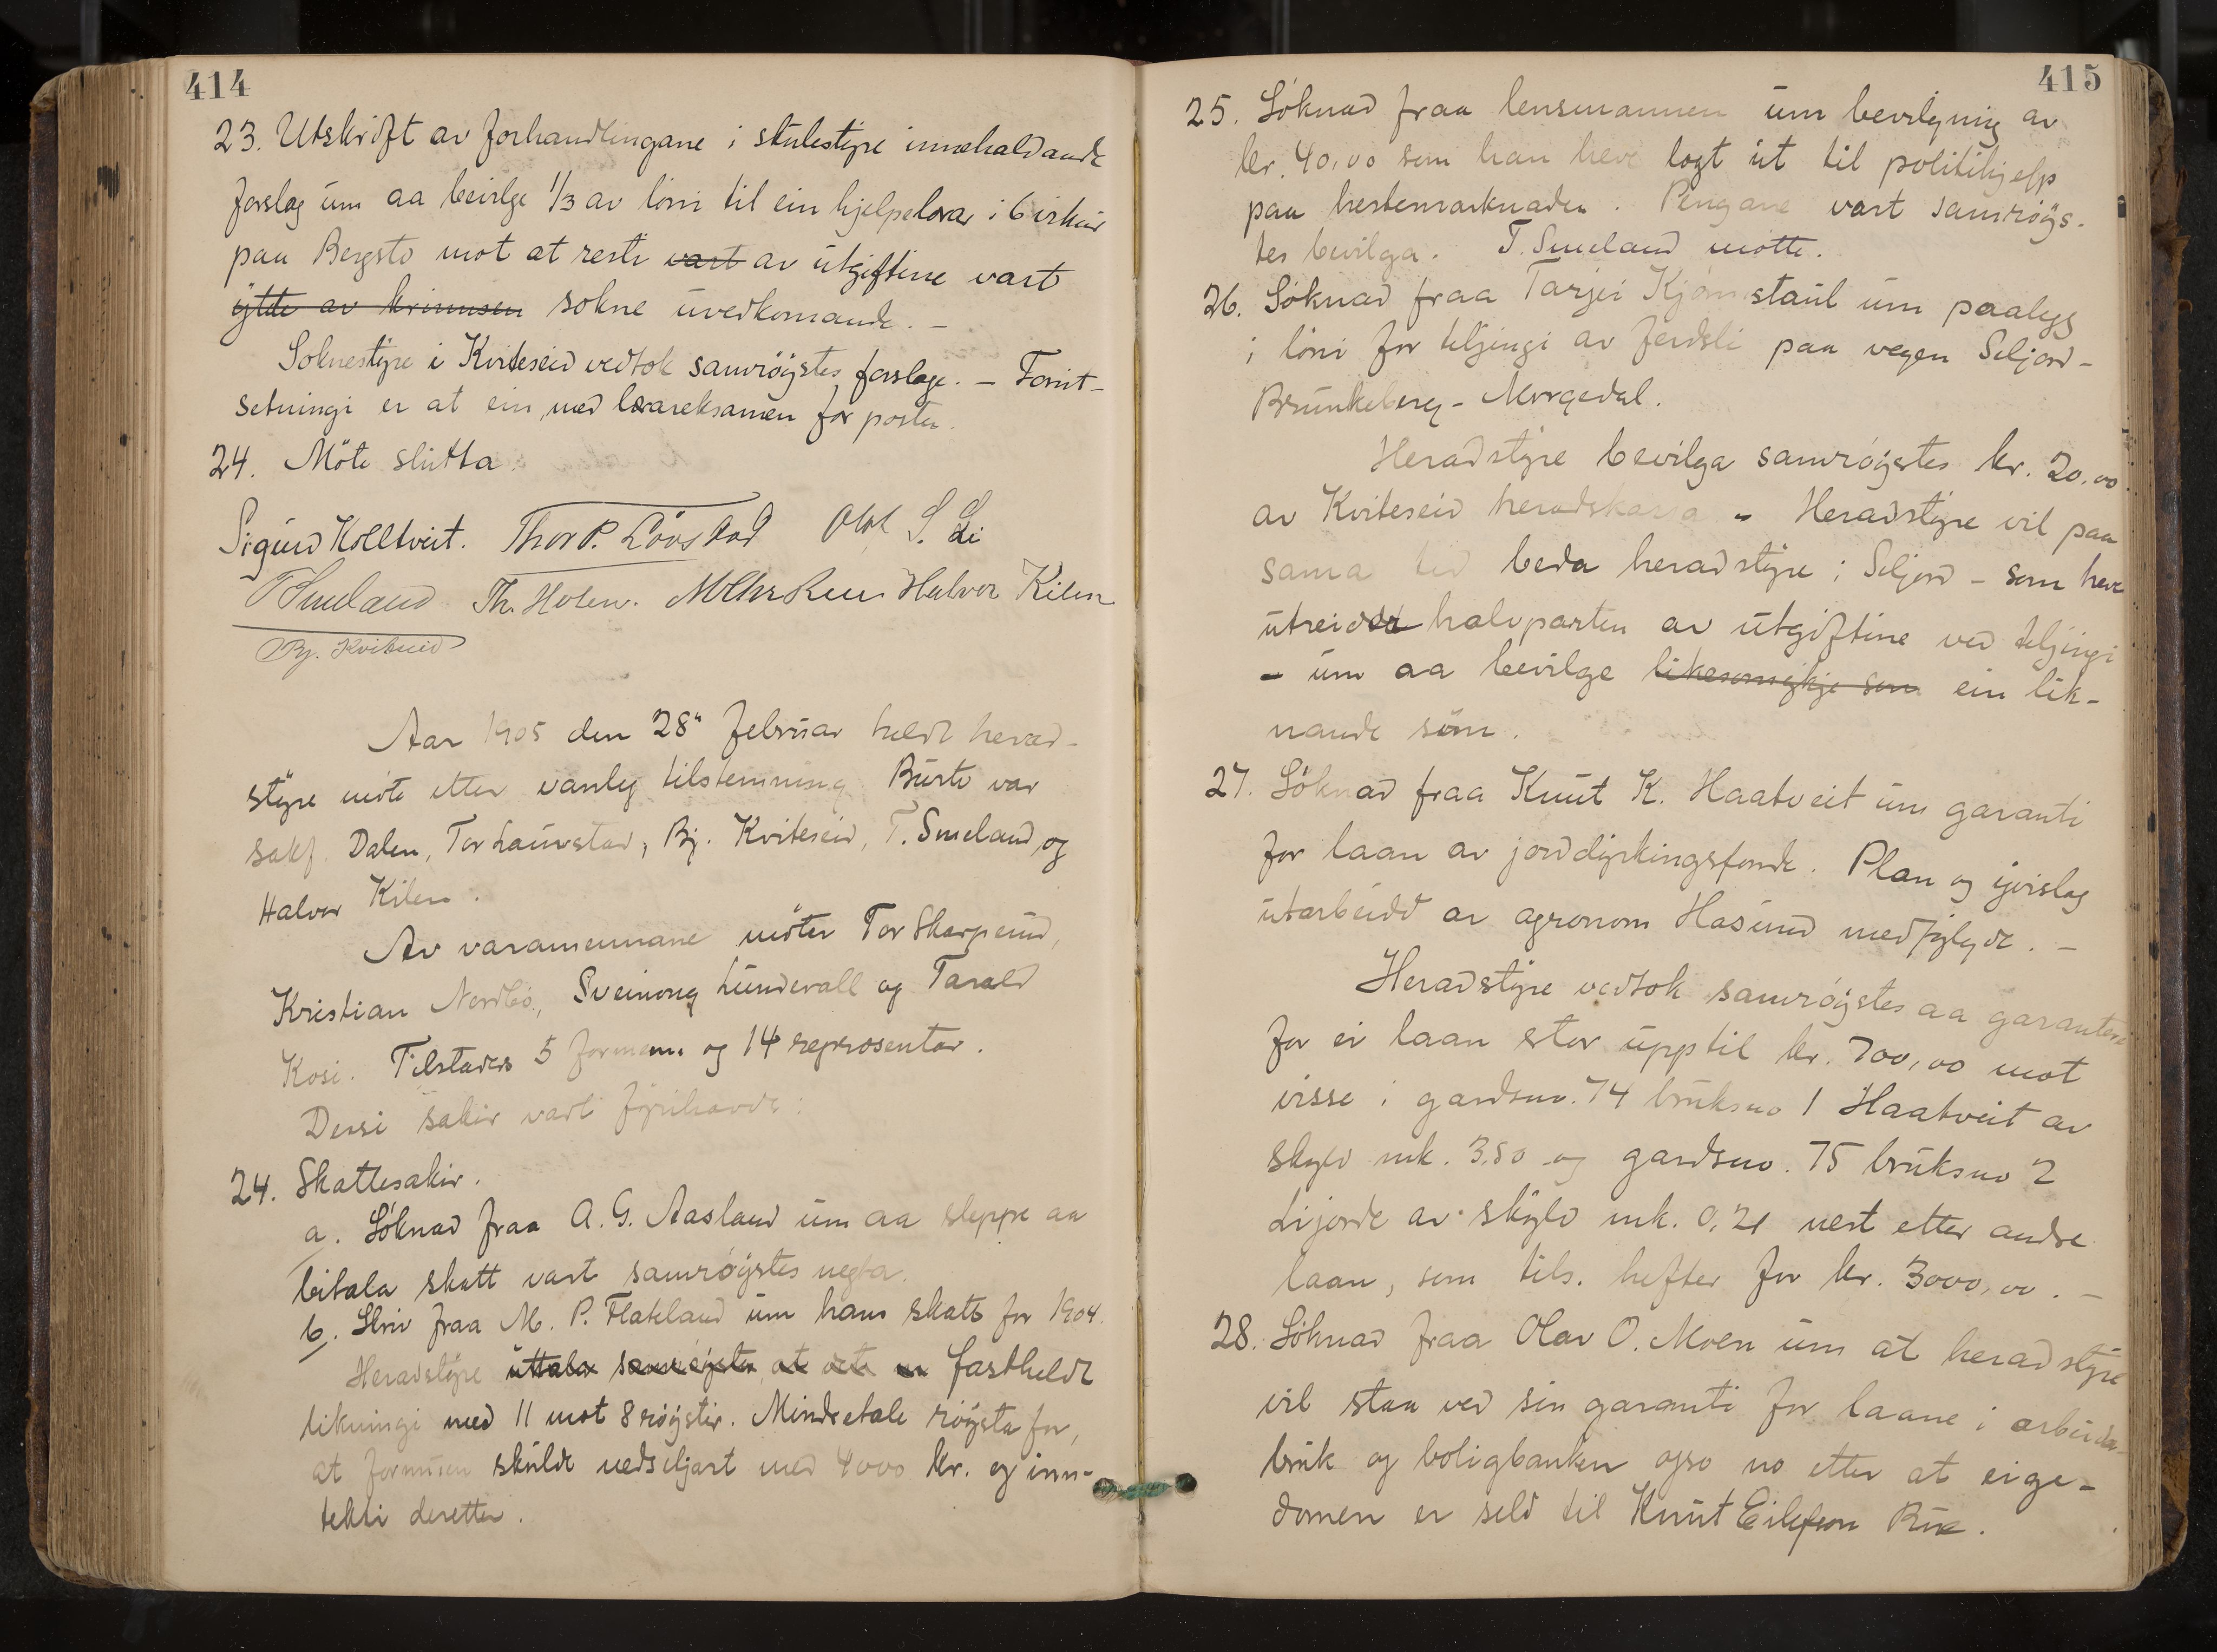 414
23. Utskrift av forhandlingane i skulestyre innehaldande
forslag um aa beivlge 1/3 av löni til ein hjelpelærar i 6 virkur
paa Bergsto mot at resti vart av utgiftine vart
ytte av krinnsen sokne uvedkomande. –
Soknestyre i Kviteseid vedtok samröystes forslage. – Forut-
setningi er at ein med lærareksamen fær posten.
24. Möte slutta.
Sigurd Kolltveit. Thor P. Lövstad Olav S. Li
T Smeland Th. Holen. Halvor Kilen
Bj. Kviteseid
Aar 1905 den 28" februar heldt herad-
styre möte etter vanleg tilstemning. Burte var
sakf. Dalen, Tor Launstad, Bj. Kviteseid, T. Smeland, og
Halvor Kilen.
Av varamennane möter Tor Skarpeund,
Kristian Nordbö, Sveinung Lundevall og Tarald
Kosi. Tilstades 5 formenn og 14 representar.
Dessi sakir vart fyrihavde:
24. Skattesakir.
a. Söknad fraa A. G. Aasland um aa sleppe aa
bitala skatt vart samröystes negta.
b. Skriv fraa M. P. Flatland um hans skatt for 1904.
Heradstyre uttaler samröystes at dette er fastheldt
likningi med 11 mot 8 röystir. Mindretale röysta for,
at formuen skulde nedseljast med 4000 kr. og inn-
tekti deretter.
415
25. Söknad fraa lensmannen um bevilgning av
kr. 40,00 som han heve logt ut til politihjelp
paa hestemarknaden. Pengane vart samröys-
tes bevilga. T. Smeland mötte.
26. Söknad fraa Tarjei Kjomstaul um paalegg
i löni for teljingi av ferdsli paa vegen Seljord-
Brunkeberg - Morgedal.
Heradstyre bevilga samröystes kr. 20,00
av Kviteseid heradskassa – Heradstyre vil paa
sama tid beda heradstyre i Seljord – som heve
utreidt halvparten av utgiftine ved teljingi
– um aa bevilge likesomykje som ein lik-
nande sum.
27. Söknad fraa Knut K. Haatveit um garanti
for laan av jorddyrkingsfonde. Plan og yvislag
utarbeidd av agronom Hasund medfylgde. –
Heradstyre vedtok samröystes aa garantere
for ei laan stor upptil kr. 700,00 mot
visse i gardsno. 74 bruksno 1 Haatveit av
skyld mk. 3,50 og gardsno. 75 bruksno 2
Lijorde av skyld mk. 0,21 nest etter andre
laan, som tils. hefter for kr. 3000,00. –
28. Söknad fraa Olav O. Moen um at heradstyre
vil staa ved sin garanti for laane i arbeidar-
bruk og boligbanken ogso no etter at eige-
domen er seld til Knut Eilefson